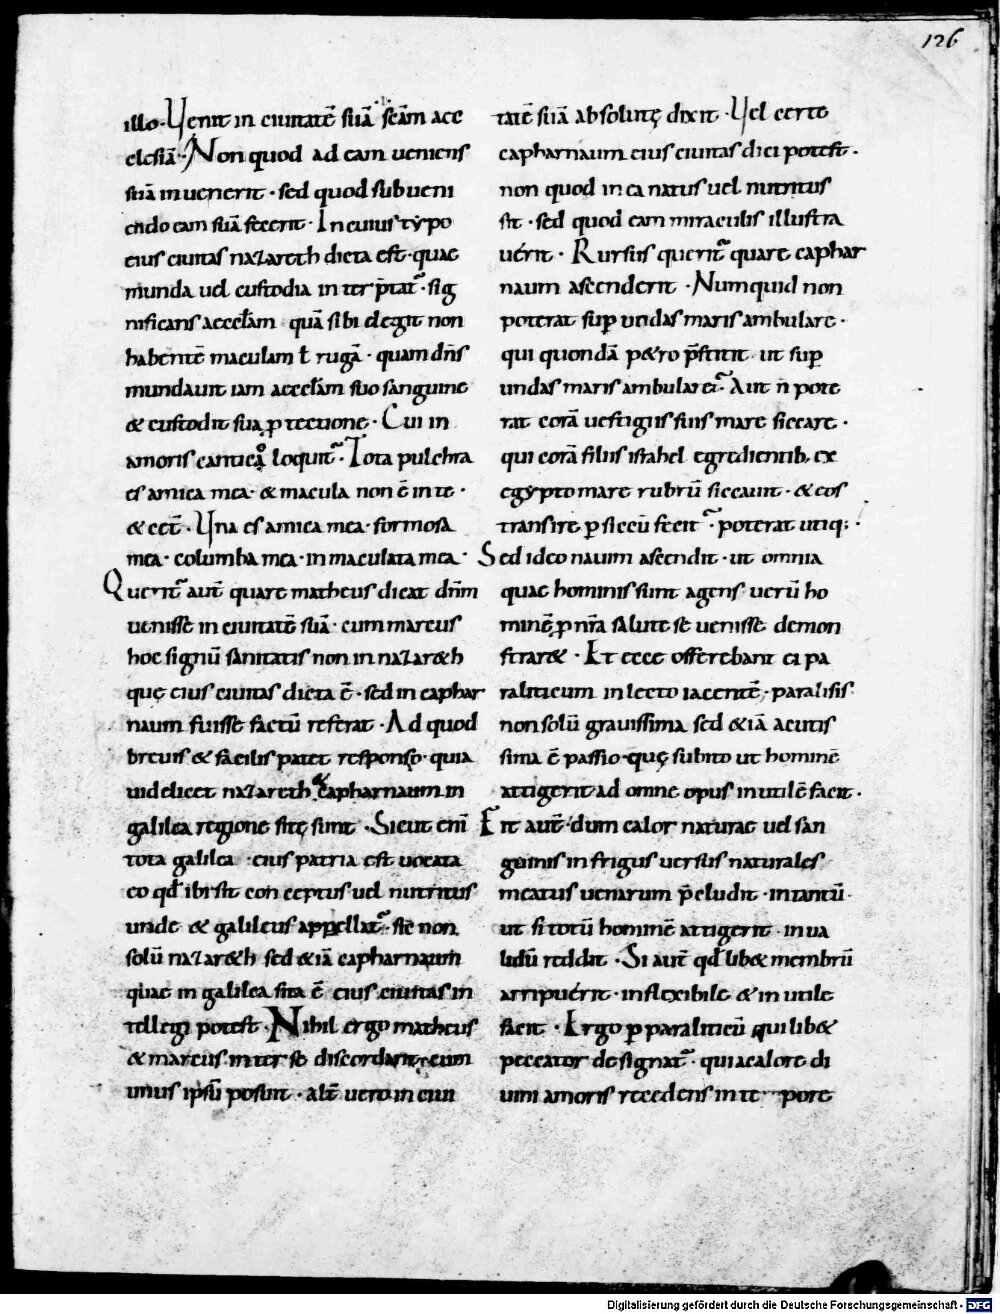 126
illo. Venit in ciuitatē suā scām aec
clesiā. Non quod ad eam ueniens
suā inuenerit. sed quod subueni
endo eam suā fecerit. In cuius typo
eius ciuitas nazareth dicta est. quae
munda uel custodia interp̄tat̄. sig
nificans aecclām quā sibi elegit non
habentē maculam ł rugā. quam dn̄s
mundauit iam aecclām suo sanguine
& custodit sua ꝓtectione. Cui in
amoris canticꝗ loquit̄. Tota pulchra
es amica mea. & macula non ē in te.
& cet̄. Una es amica mea. formosa
mea. columba mea. inmaculata mea.
Querit̄ aut̄ quare matheus dicat dn̄m
uenisse in ciuitatē suā. cum marcus
hoc signū sanitatis non in nazar&h
quę eius ciuitas dicta ē. sed in caphar
naum fuisse factū referat. Ad quod
breuis & facilis patet responsio. quia
uidelicet nazareth & capharnaum in
galilea regione sitę sunt. Sicut enī
tota galilea eius patria est uocata
eo qđ ibi sit conceptus uel nutritus
unde & galileus appellat̄. sic non
solū nazar&h sed &iā capharnaum
quae in galilea sita ē eius ciuitas in
tellegi potest. Nihil ergo matheus
& marcus inter se discordant. cum
unus ipsū possunt. alt̄ uero in ciui
tatē suā absolutę dixit. Vel certe
capharnaum eius ciuitas dici potest.
non quod in ea natus uel nutritus
sit. sed quod eam miraculis illustra
uérit. Rursus querit̄ quare caphar
naum ascenderit. Numquid non
poterat suꝑ undas maris ambulare.
qui quondā p&ro p̄stitit ut suꝑ
undas maris ambular&. Aut n̄ pote
rat corā uestigiis suis mare siccare.
qui corā filiis israhel egredientib; ex
egypto mare rubrū siccauit. & eos
transire ꝑ siccū fecit. poterat utiq;.
Sed ideo nauim ascendit. ut omnia
quae hominis sunt agens uerū ho
minē ꝓ nr̄a salute se uenisse demon
strar&. Et ecce offerebant ei pa
raliticum in lecto iacentē. paralisis
non solū grauissima sed &iā acutis
sima ē passio. quę subito ut hominē
attigerit ad omne opus inutilē facit.
Fit aut̄ dum calor naturae uel san
guinis in frigus uersus naturales
meatus uenarum p̄cludit. intantū.
ut si totū hominē attigerit. inua
lidū reddit. Si aut̄ qđlib& membrū
arripuérit. inflexibile & inutile
facit. Ergo ꝑ paraliticū quilib&
peccator designat̄. qui a calore di
uini amoris recedens in te pore
Digitalisierung gefördert durch die Deutsche Forschungsgemeinschaft - DFG